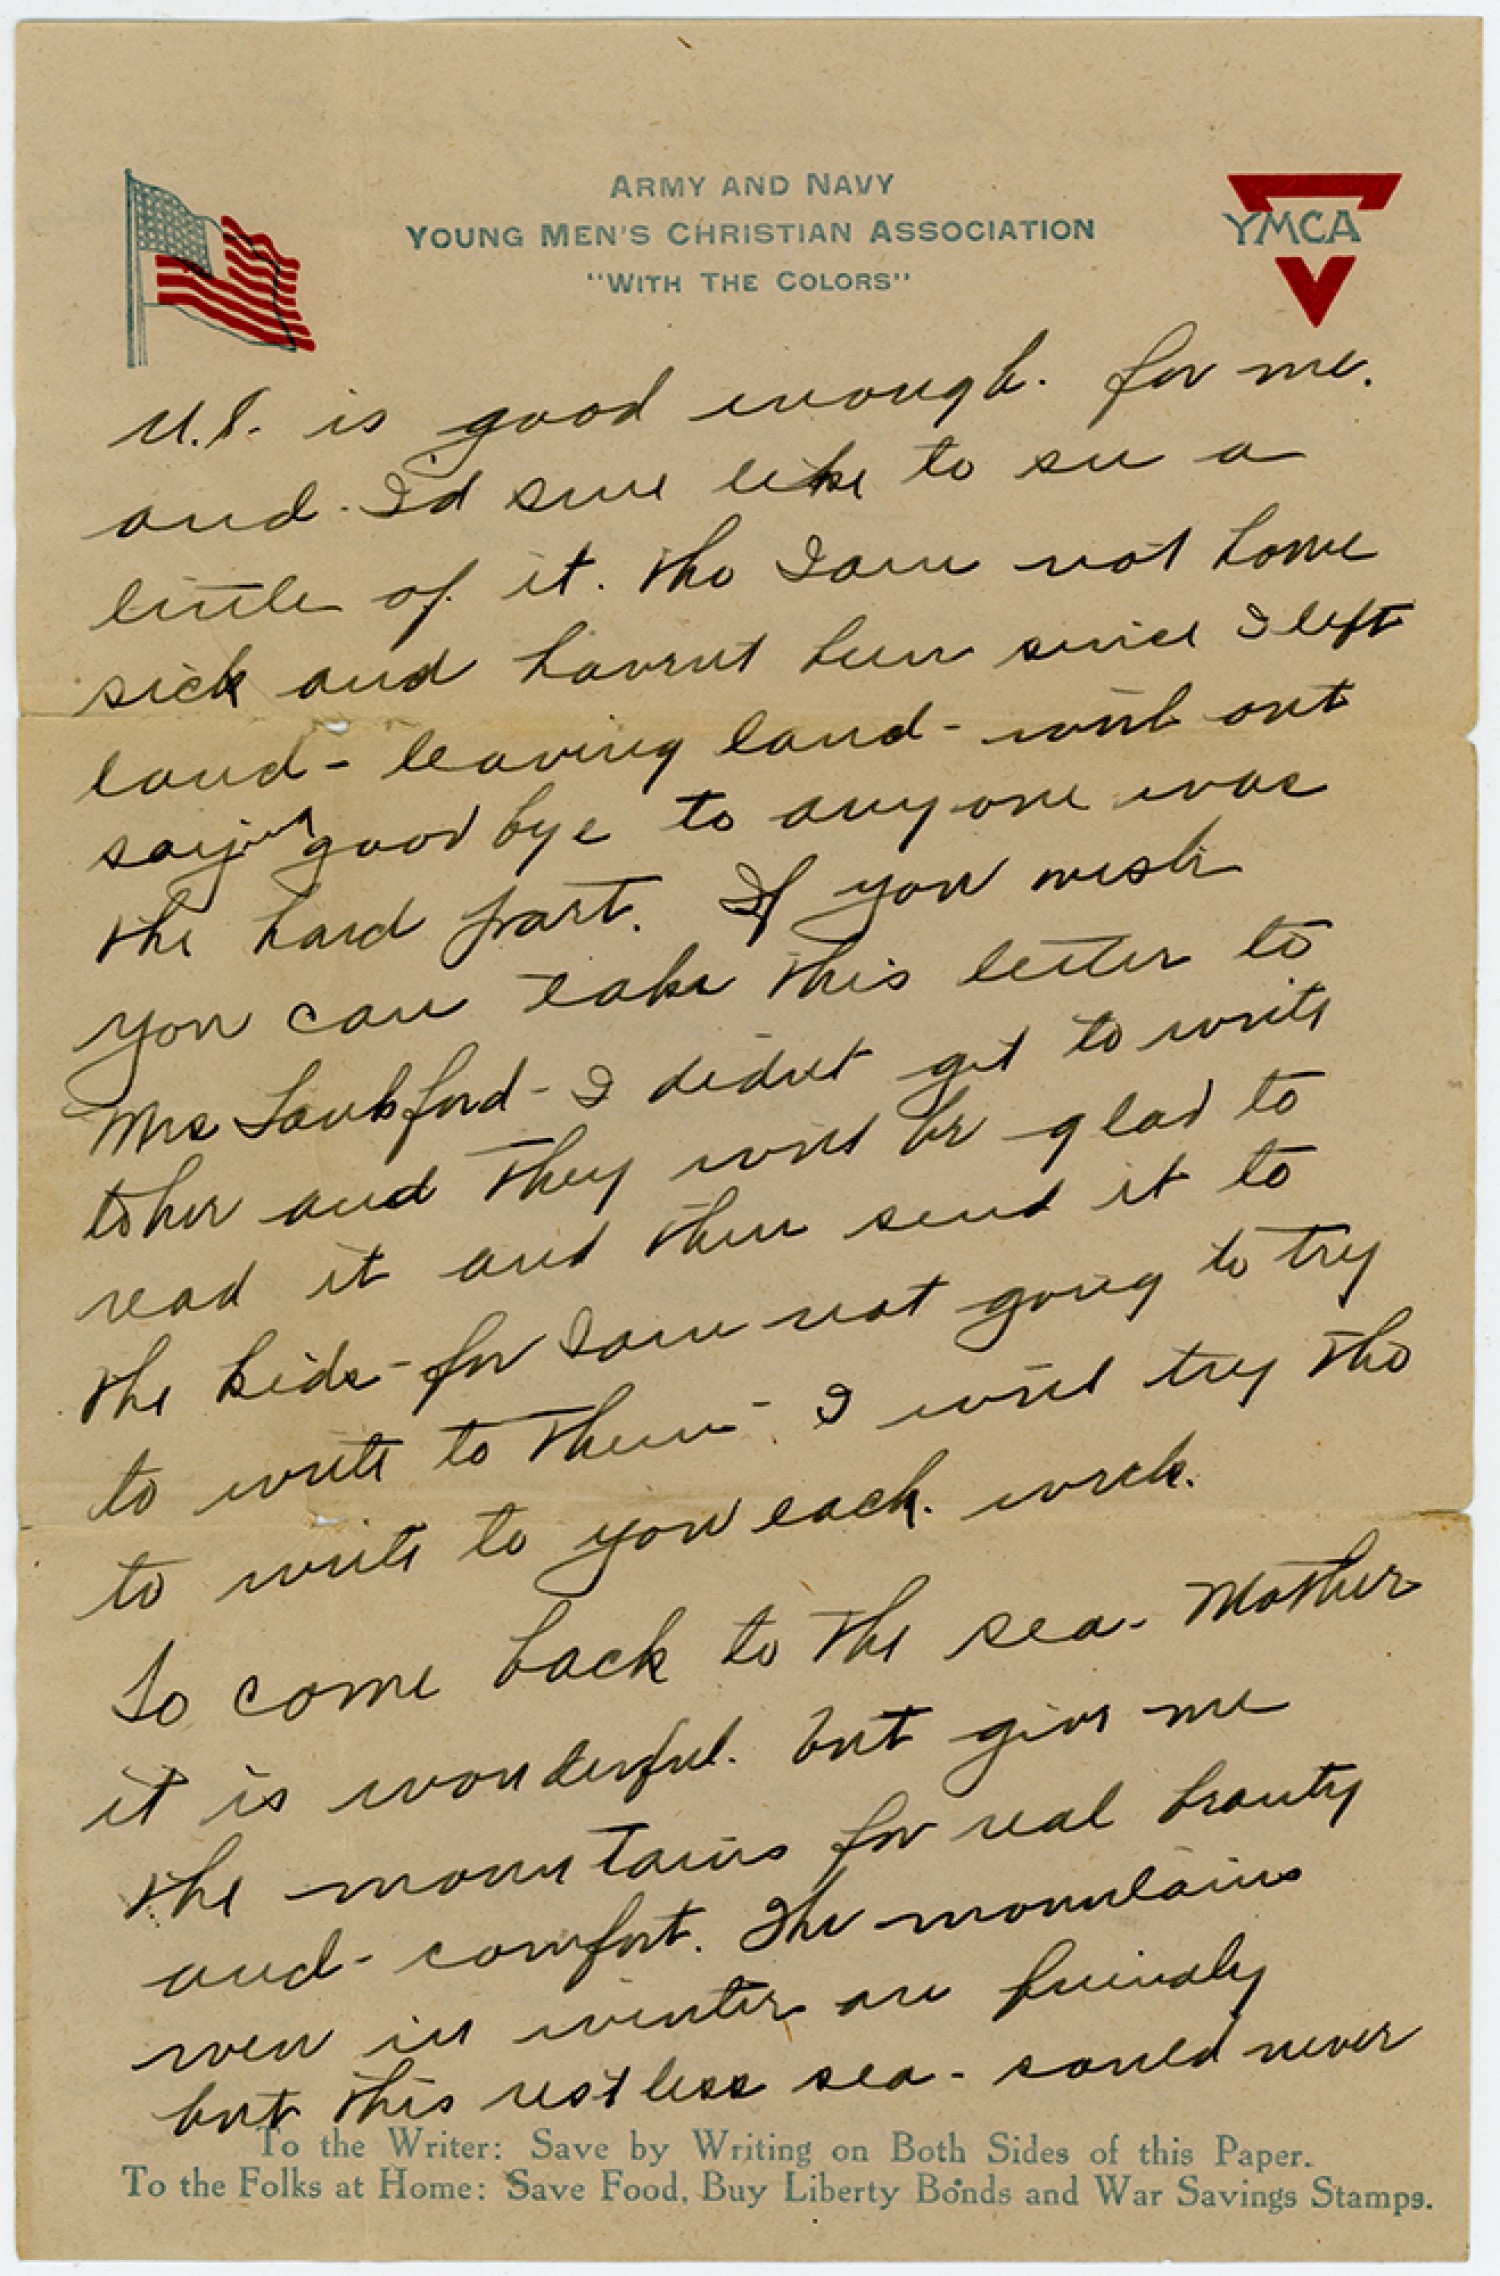 ARMY AND NAVY
YOUNG MEN'S CHRISTIAN ASSOCIATION
"WITH THE COLORS"
YMCA
U.S. is good enough. for me.
and. I'd sure like to see a
little of it. tho I am not home
sick and havent been since I left
land - leaving land - with out
saying good bye to anyone was
the hard part. If you wish
you can take this letter to
Mrs Lankford - I didnt get to write
to her and they will be glad to
read it and then send it to
the kids - for I am not going to try
to write to them - I will try tho
to write to you each. week.
To come back to the sea. Mother
it is wonderful. but give me
the mountains for real beauty
and - comfort. The mountains
even in winter are friendly
but this restless sea - could never
To the Writer: Save by Writing on Both Sides of this Paper.
To the Folks at Home: Save Food, Buy Liberty Bonds and War Savings Stamps.